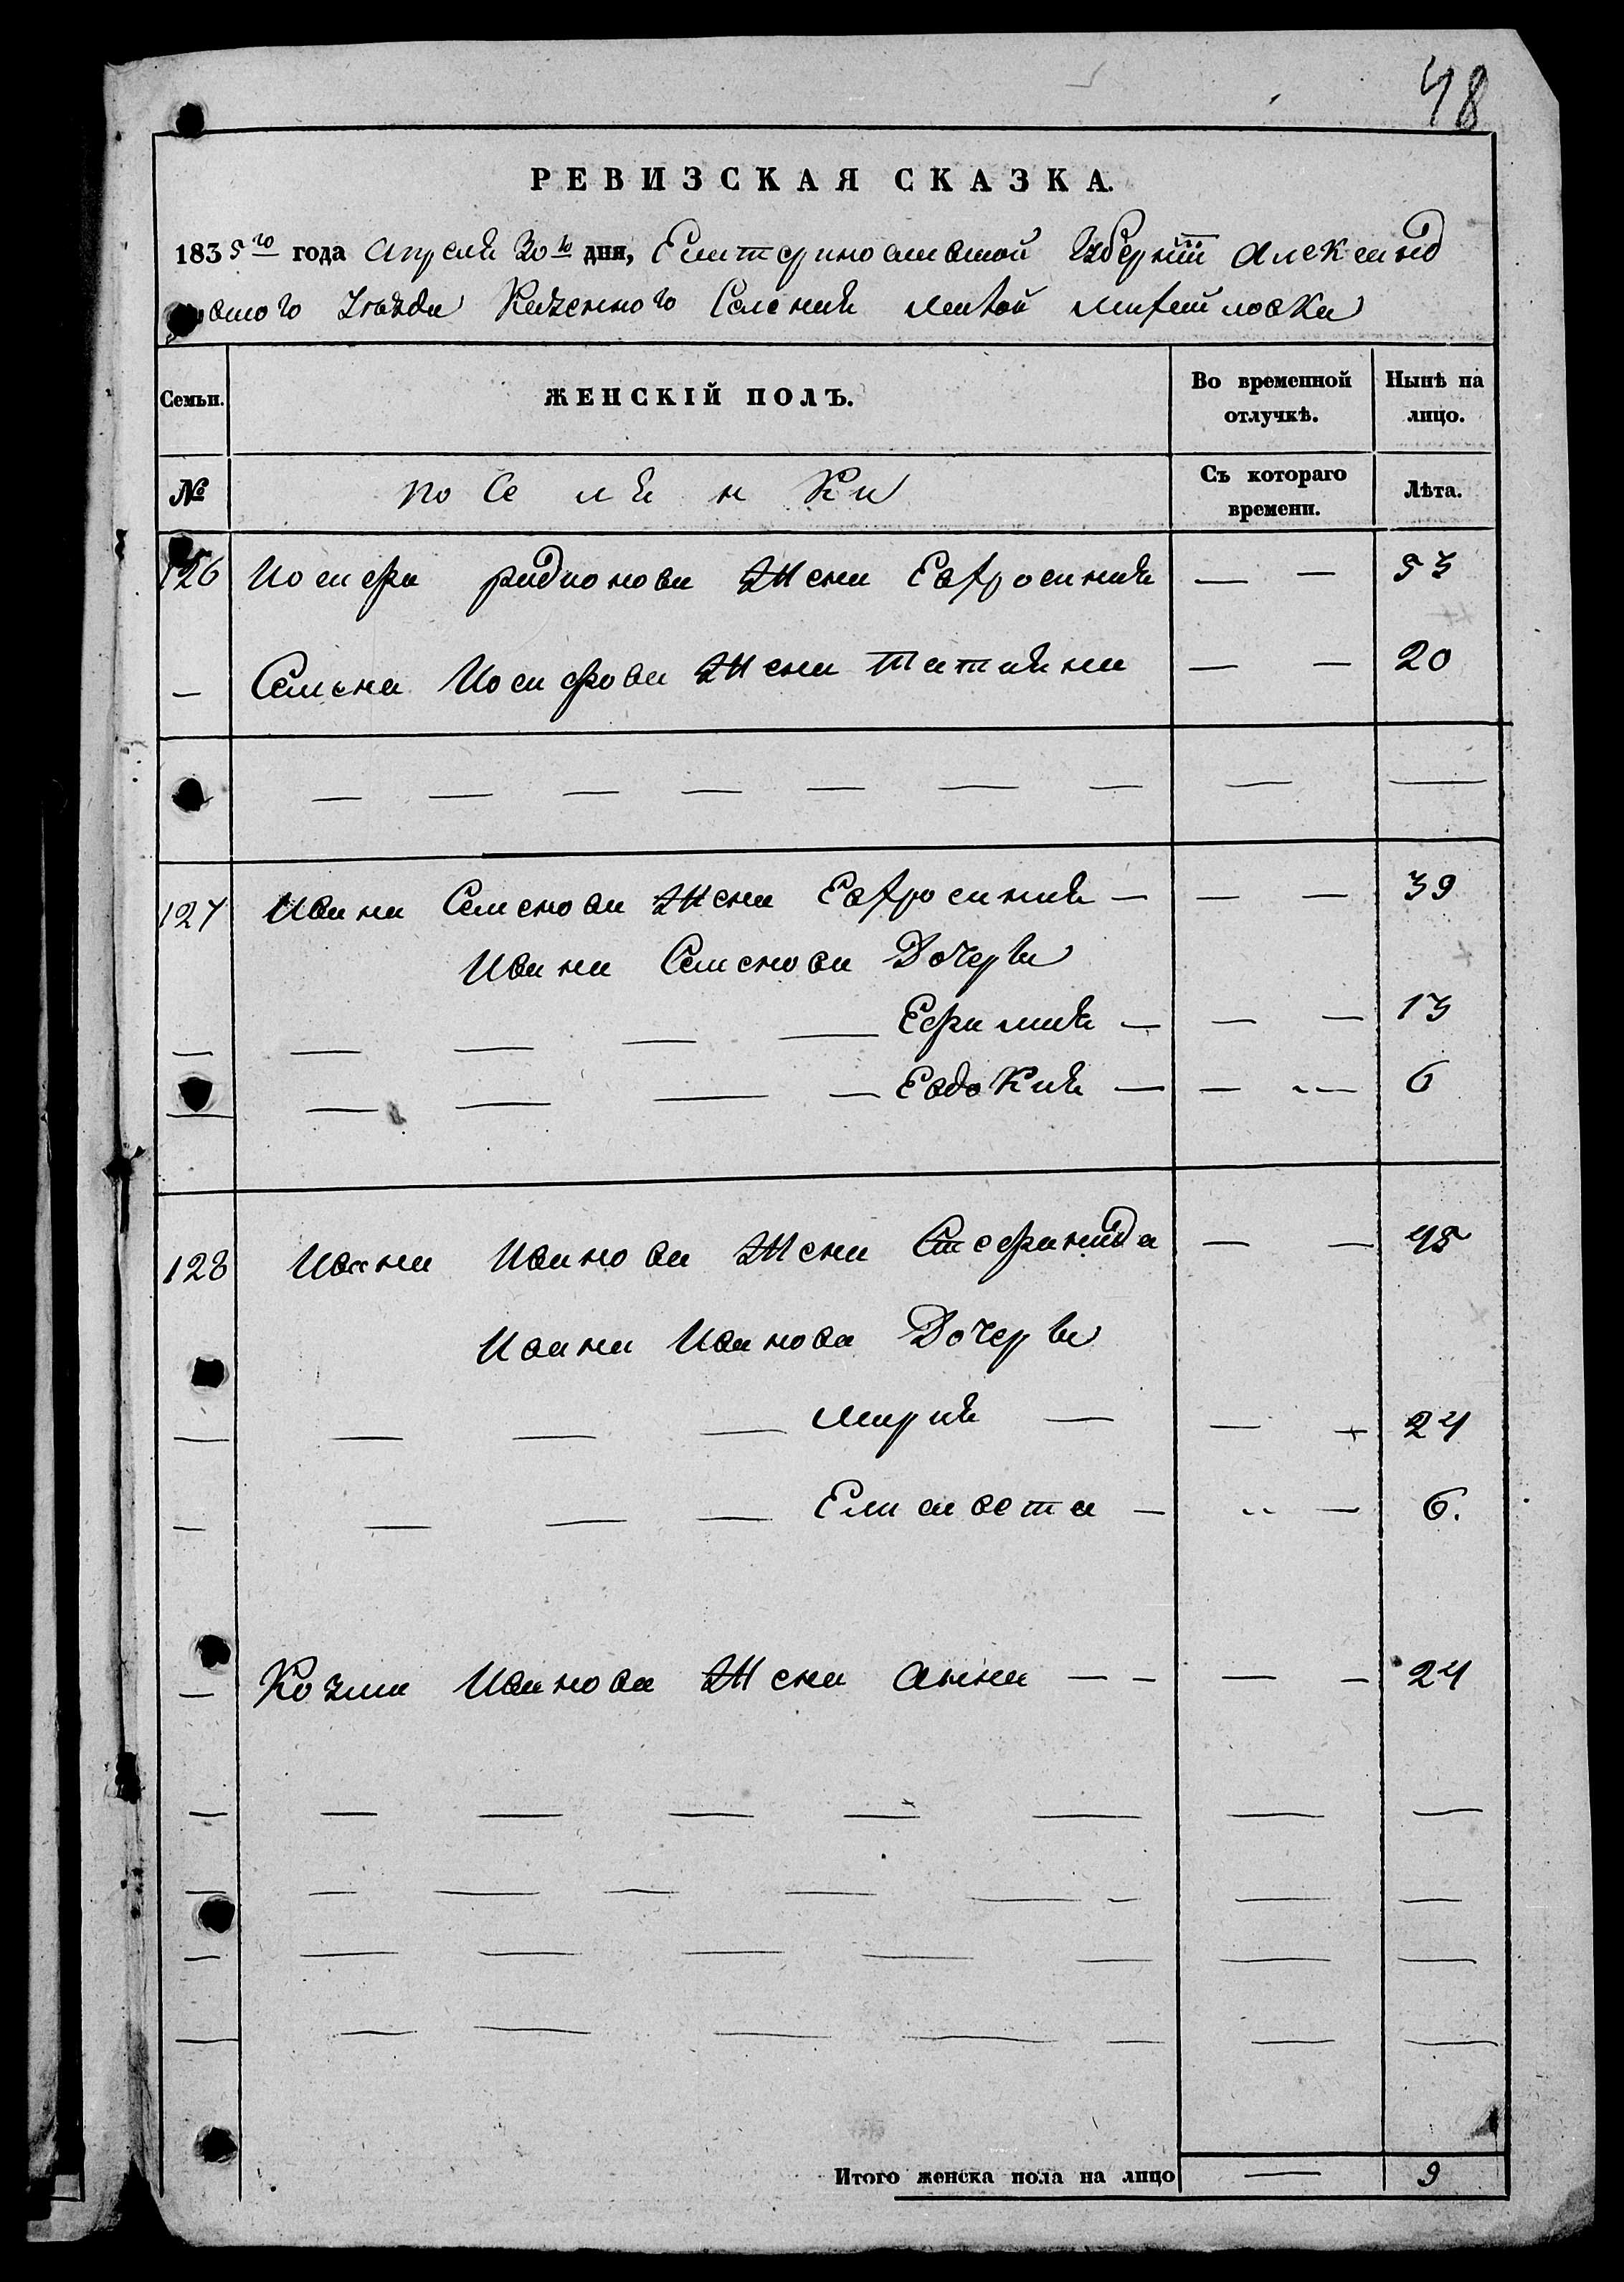 48
РЕВИЗСКАЯ СКАЗКА.
1835го года Апреля 30го дня, Екатериносла­вской Губернии Александ
вского Уезда Казенного Селения Малой михайловки
Семьи. ЖЕНСКІЙ ПОЛЪ. Во временной отлучкѣ. Нынѣ на лицо.
№ поселянки Съ котораго времени. Лѣта.
126 Иосифа радионова Жена Евфросиния — — 53
— Семена Иосифова Жена Татияна — — 20
— — — — — — — — —
127 Ивана Семенова Жена Евфросиния — — — 39
Ивана Семенова Дочери
— — — — — Ефимия — — — 13
— — — — — Евдокия — — — 6
128 Ивана Иванова Жена Стефанида — — 45
Ивана Иванова Дочери
— — — — Мария — — — 24
— — — — Елисавета — — 6.
— Козми Иванова Жена Анна — — — — 24
— — — — — — — —
— — — — — — — — —
— — — — — — — —
— — — — — — — —
Итого женска пола на лицо — 9